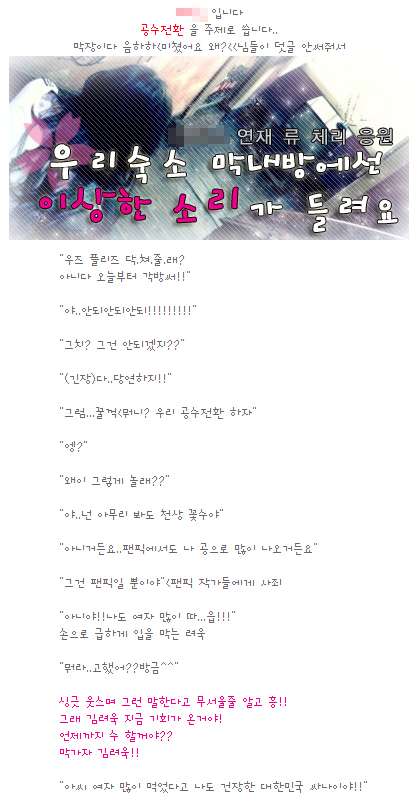 입니다
공수전환 을 주제로 씁니다..
막장이다 음하하<미쳤어요 왜?<<님들이 덧글 안써줘서
연재 류 체리 응원
우리숙소 막내방에선
이상한 소리가 들려요
"우즈 플리즈 닥.쳐.줄.래?
아니다 오늘부터 각방써!!"
"야..안되안되안되!!!!!!!!!"
"그치? 그건 안되겠지??"
"(긴장)다..당연하지!!"
"그럼...꿀꺽<뭐니? 우리 공수전환 하자"
"엥?"
"왜이 그렇게 놀래??"
"야..넌 아무리 봐도 천상 꽃수야"
"아니거든요..팬픽에서도 나 공으로 많이 나오거든요"
"그건 팬픽일 뿐이야"<팬픽 작가들에게 사죄
"아니야!!나도 여자 많이 따...읍!!!"
손으로 급하게 입을 막는 려욱
"뭐라..고했어??방금^^"
싱긋 웃스며 그런 말한다고 무서울줄 알고 흥!!
그래 김려욱 지금 기회가 온거야!
언제까지 수 할꺼야??
막가자 김려욱!!
"아씨 여자 많이 먹었다고 나도 건장한 대한민국 싸나이야!!"